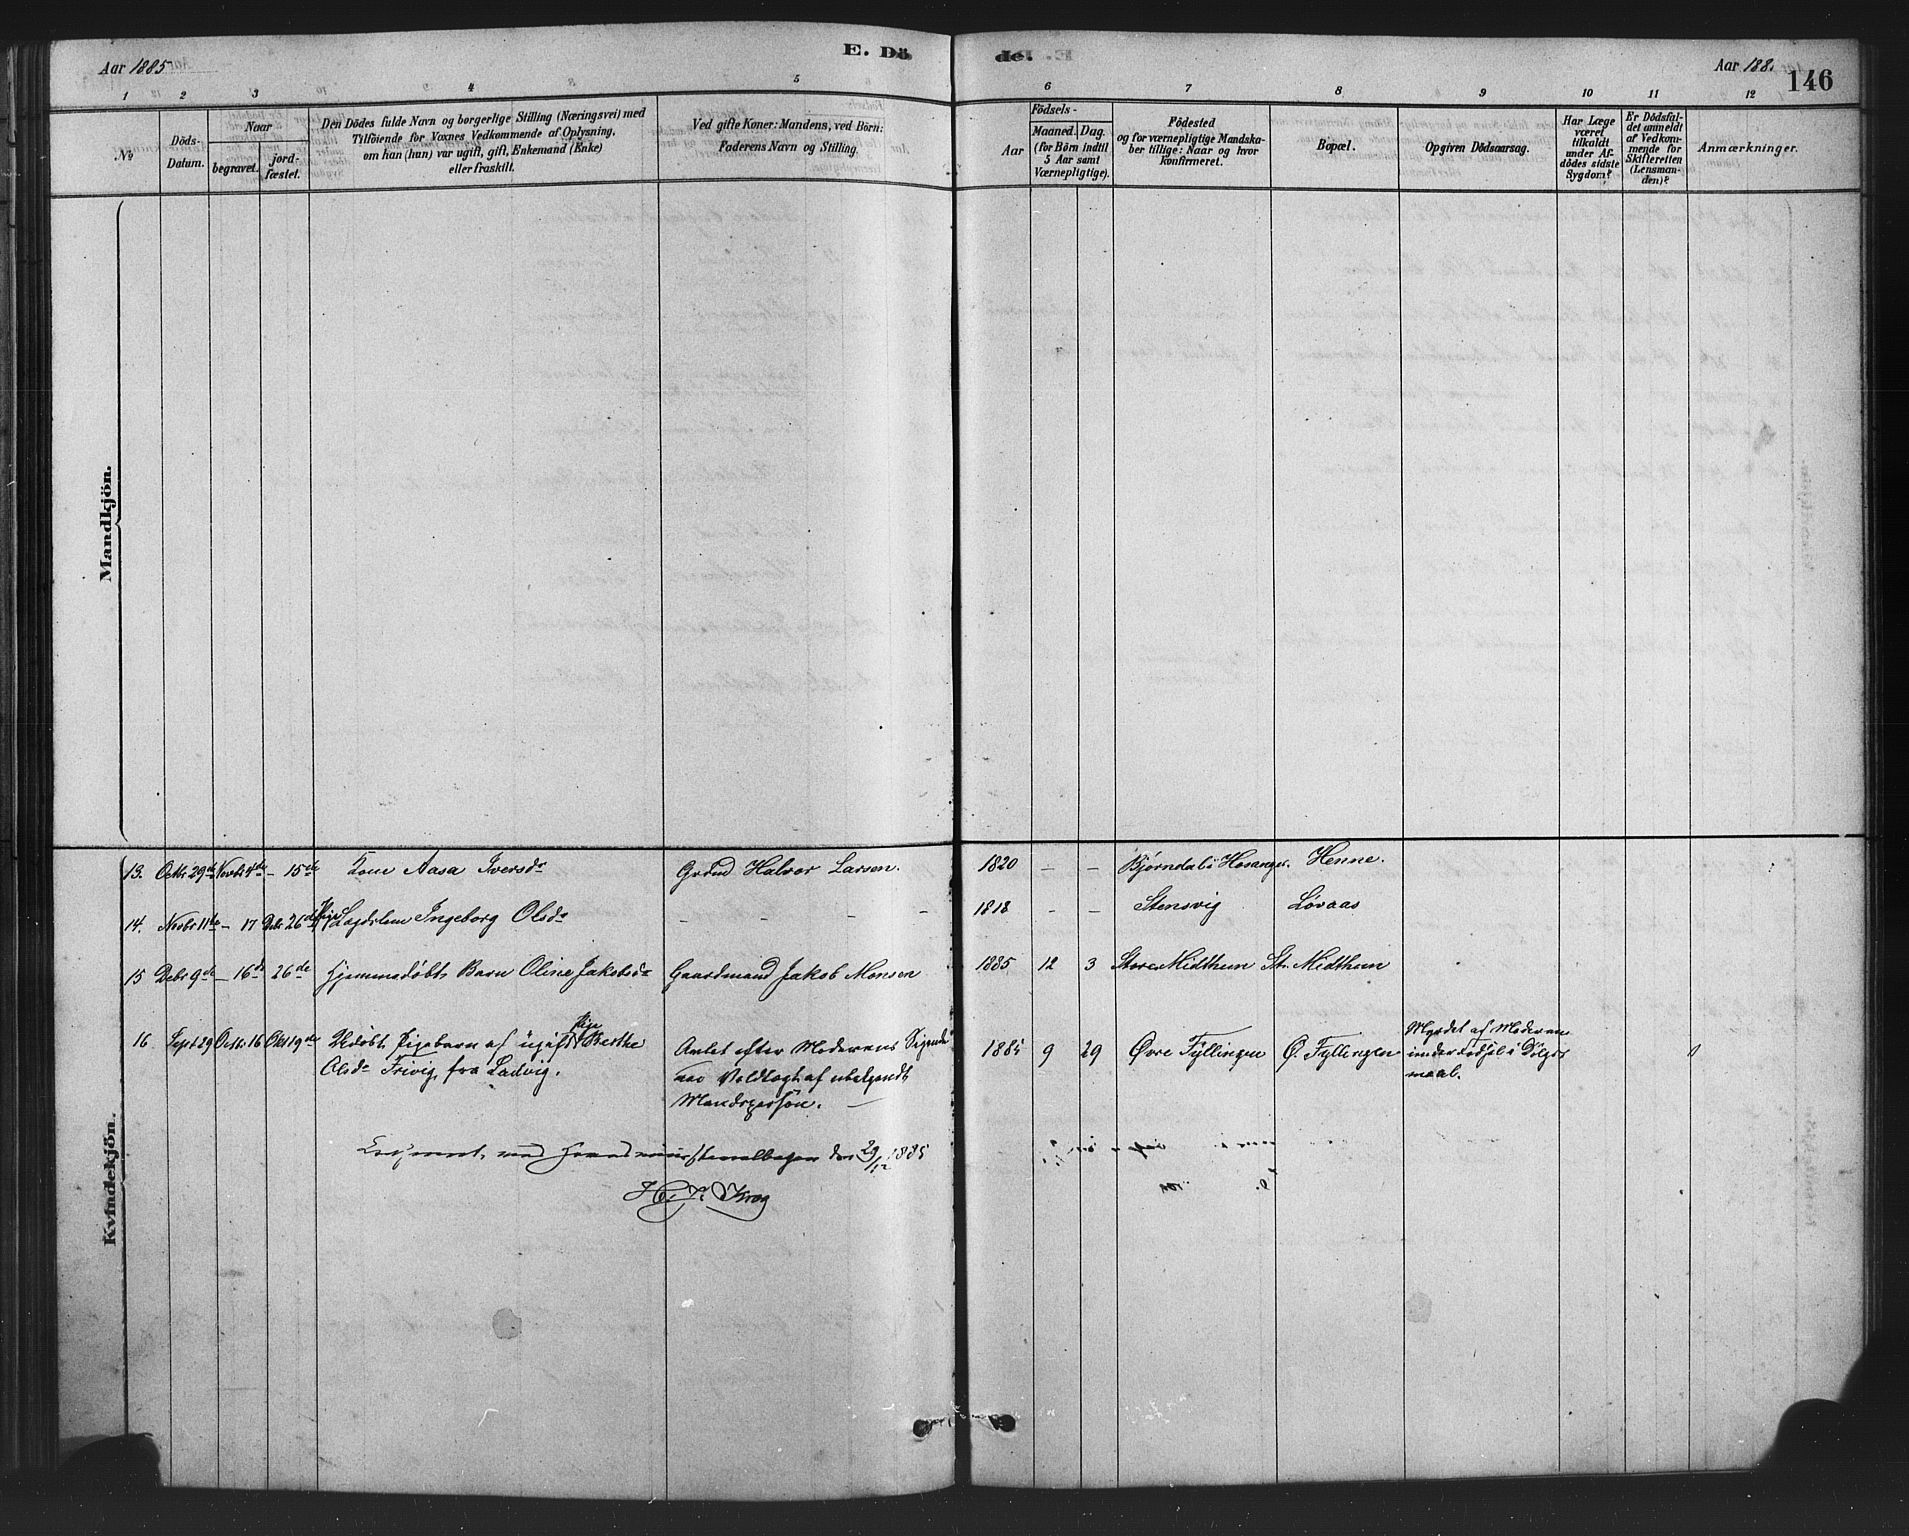 Aar 1885
E. Dö
de.
Aar 188
146
1 2 3 4 5 6 7 8 9 10 11 12
№
Döds-
Datum.
Naar
begravet.
jord-
fæstet.
Den Dödes fulde Navn og borgerlige Stilling (Næringsvei) med
Tilföiende for Voxnes Vedkommende af Oplysning,
om han (hun) var ugift, gift, Enkemand (Enke)
eller fraskilt.
Ved gifte Koner: Mandens, ved Börn:
Faderens Navn og Stilling.
Födsels-
Aar
Maaned. Dag.
(for Börn indtil
5 Aar samt
Værnepligtige).
Födested
og for værnepligtige Mandska-
ber tillige: Naar og hvor
Konfirmeret.
Bopæl.
Opgiven Dödsaarsag.
Har Læge
været
tilkaldt
under Af-
dödes sidste
Sygdom?
Er Dödsfal-
det anmeldt
af Vedkom-
mende for
Skifteretten
(Lensman-
den)?
Anmærkninger.
Mandkjön.
Kvindekjön.
13. Octbr 29de Novbr 4de – 15de Kone Aasa Iversdr Grdmd Halvor Larsen. 1820 – – Bjørndal i Hosanger. Henne.
14. Novbr 11te – 17 Debr 26de Pige Lægdslem Ingeborg Olsdr – – – – – 1818 – – Stensvig Løvaas
15 Debr 9de – 16de 26de Hjemmedøbt Barn Oline Jakobsdr Gaardmand Jakob Monsen 1885 12 3 Store Midthun St. Midthun
16 Sept 29 Octb. 16 Okt 19de Udøbt Pigebarn af ugift Pige Berthe Avlet efter Moderens Sigende 1885 9 29 Øvre Fyllingen Ø. Fyllingen Myrdet af Moderen
Olsdr Trivig fra Ladvig. ved Voldtægt af ubekjendt under Fødsel i Dølgs-
Mandsperson. – maal.
med den 29/12 1885
Krog